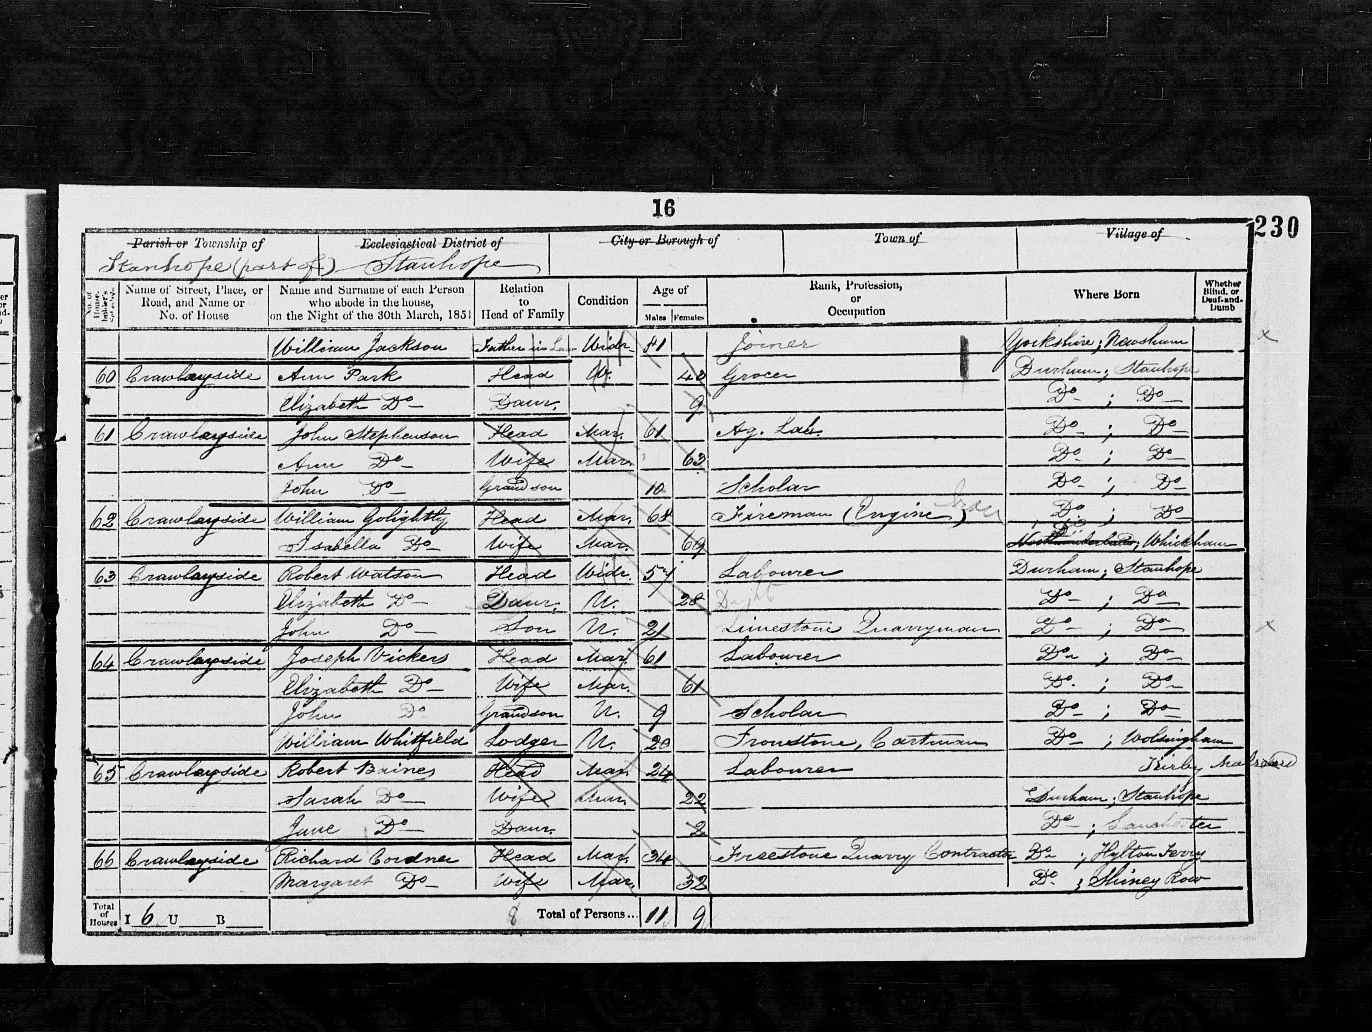 16
230
Parish or Township of
Stanhope (part of)
Ecclesiastical District of
Stanhope
City or Borough of
Town of
Village of
No. of House-holder's
Name of Street, Place, or Road, and Name or No. of House
Name and Surname of each Person who abode in the house, on the Night of the 30th March, 1851
Relation to Head of Family
Condition
Age of
Males Females
Rank, Profession, or Occupation
Where Born
Whether Blind, or Deaf-and-Dumb
William Jackson Father in Law Widr 81 Joiner Yorkshire; Newsham x
60 Crawleyside Ann Park Head 42 Grocer Durham; Stanhope
Elizabeth Do Daur. 9 Do ; Do
61 Crawleyside John Stephenson Head Mar. 61 Ag. Lab. Do ; Do
Ann Do Wife Mar. 63 Do ; Do
John Do Grandson 10 Scholar Do ; Do
62 Crawleyside William Golightly Head Mar. 68 Fireman (Engine) Do ; Do
Isabella Do Wife Mar. 69 Do Whickham
63 Crawleyside Robert Watson Head Widr 57 Labourer Durham; Stanhope
Elizabeth Do Daur. U. 28 Do ; Do
John Do Son U. 21 Limestone Quarryman Do ; Do x
64 Crawleyside Joseph Vickers Head Mar. 61 Labourer Do ; Do
Elizabeth Do Wife Mar. 61 Do ; Do
John Do Grandson U. 9 Scholar Do ; Do
William Whitfield Lodger U. 20 Ironstone, Cartman Do ; Wolsingham
65 Crawleyside Robert Baines Head Mar. 24 Labourer Kirby
Sarah Do Wife Mar. 22 Durham; Stanhope
Jane Do Daur. 2 Do ; Lanchester
66 Crawleyside Richard Cordner Head Mar. 34 Freestone Quarry Contractor Do ; Hylton Ferry
Margaret Do Wife Mar. 32 Do ; Shiney Row
Total of Houses I 6 U B 8 Total of Persons... 11 9